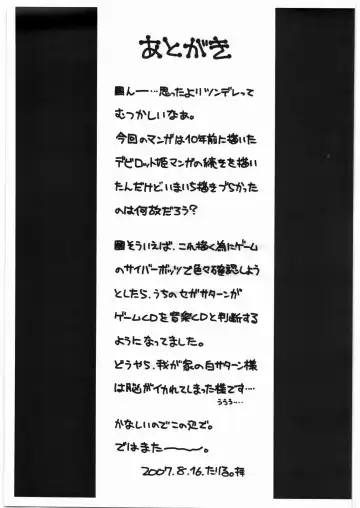 あとがき
■んー…思ったよりツンデレって
むつかしいなぁ。
今回のマンガは10年前に描いた
デビロット姫マンガの続きを描い
たんだけど、いまいち描きづらかった
のは何故だろう?
■そういえば、これ描く為にゲーム
のサイバーボッツで色々確認しよう
としたら、うちのセガサターンが
ゲームCDを音楽CDと判断する
ようになってました。
どうやら、我が家の白サターン様
は脳がイカれてしまった様です…
うぅぅ…
かなしいのでこの辺で。
ではまたー。
2007.8.16.たりる。拝